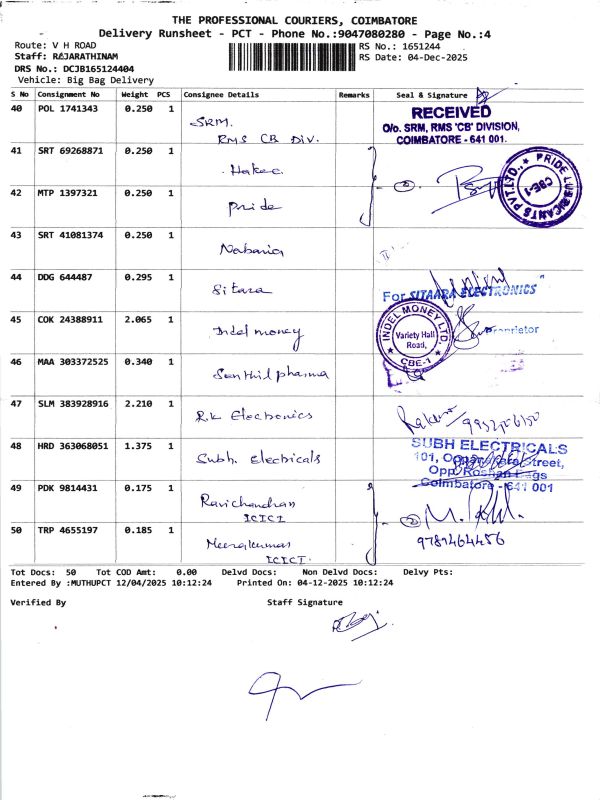 THE PROFESSIONAL COURIERS, COIMBATORE
Delivery Runsheet - PCT - Phone No.:9047080280 - Page No.:4
Route: V H ROAD
RS No.: 1651244
Staff: RAJARATHINAM
RS Date: 04-Dec-2025
DRS No.: DCJB165124404
Vehicle: Big Bag Delivery
S No Consignment No Weight PCS Consignee Details Remarks Seal & Signature
40 POL 1741343 0.250 1
SRM.
RMS CB DIV.
RECEIVED
O/o. SRM, RMS 'CB' DIVISION,
COIMBATORE - 641 001.
41 SRT 69268871 0.250 1
42 MTP 1397321 0.250 1 Pride
PRIDE LUBRICANTS PVT.LTD.,
CBE-1
43 SRT 41081374 0.250 1
44 DDG 644487 0.295 1 Sitara
For SITAARA ELECTRONICS
Proprietor
45 COK 24388911 2.065 1 Indel money
INDEL MONEY LTD.
Variety Hall
Road,
CBE-1
46 MAA 303372525 0.340 1 Senthil pharma
47 SLM 383928916 2.210 1 R.K Electronics
48 HRD 363068051 1.375 1 Subh. Electricals
SUBH ELECTRICALS
101, Oppanakara Street,
Opp. Roshan Bags
Coimbatore - 641 001
49 PDK 9814431 0.175 1 Ravichandran
ICICI
50 TRP 4655197 0.185 1 Meerakumar
ICICI.
9789464456
Tot Docs: 50 Tot COD Amt: 0.00 Delvd Docs: Non Delvd Docs: Delvy Pts:
Entered By :MUTHUPCT 12/04/2025 10:12:24 Printed On: 04-12-2025 10:12:24
Verified By Staff Signature